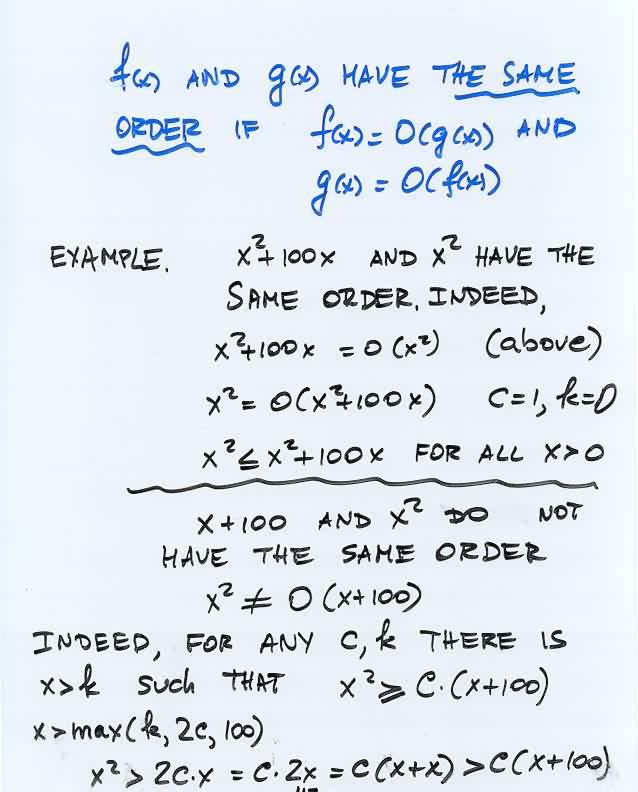 f(x) AND g(x) HAVE THE SAME
ORDER IF f(x) = O(g(x)) AND
g(x) = O(f(x))
EXAMPLE. x²+100x AND x² HAVE THE
SAME ORDER. INDEED,
x²+100x = O(x²) (above)
x² = O(x²+100x) C=1, k=0
x² ≤ x²+100x FOR ALL x>0
x+100 AND x² DO NOT
HAVE THE SAME ORDER
x² ≠ O(x+100)
INDEED, FOR ANY C, k THERE IS
x>k such THAT x² ≥ C·(x+100)
x>max(k, 2C, 100)
x² > 2C·x = C·2x = C(x+x) > C(x+100)